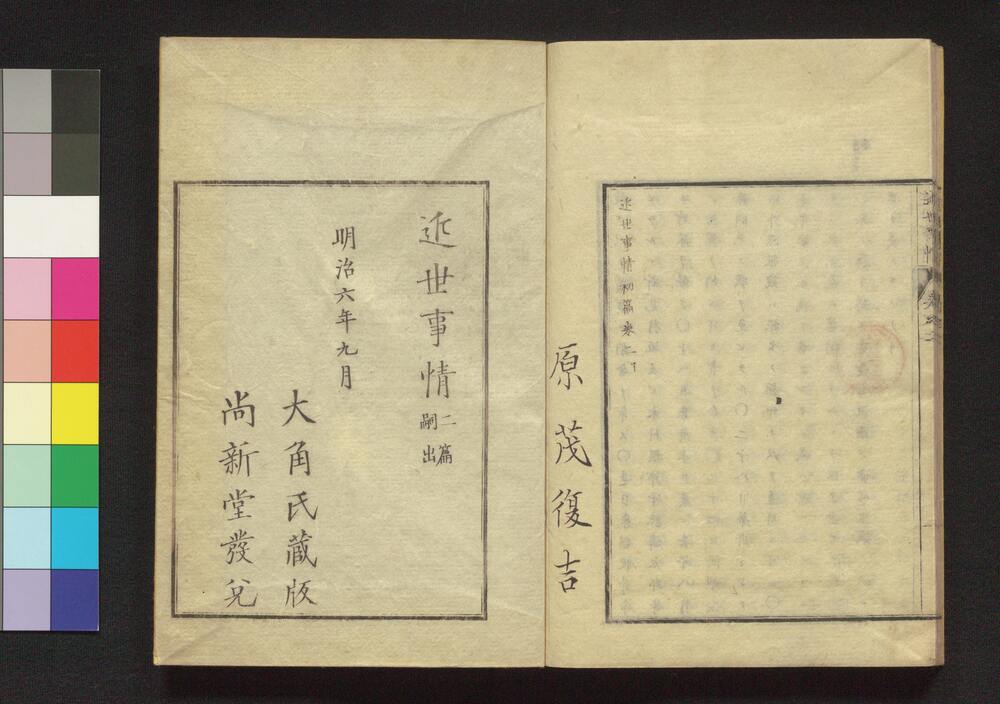 近世事情
近世事情初篇巻二下
原茂復吉
近世事情二篇嗣出
明治六年九月
大角氏蔵版
尚新堂發兌